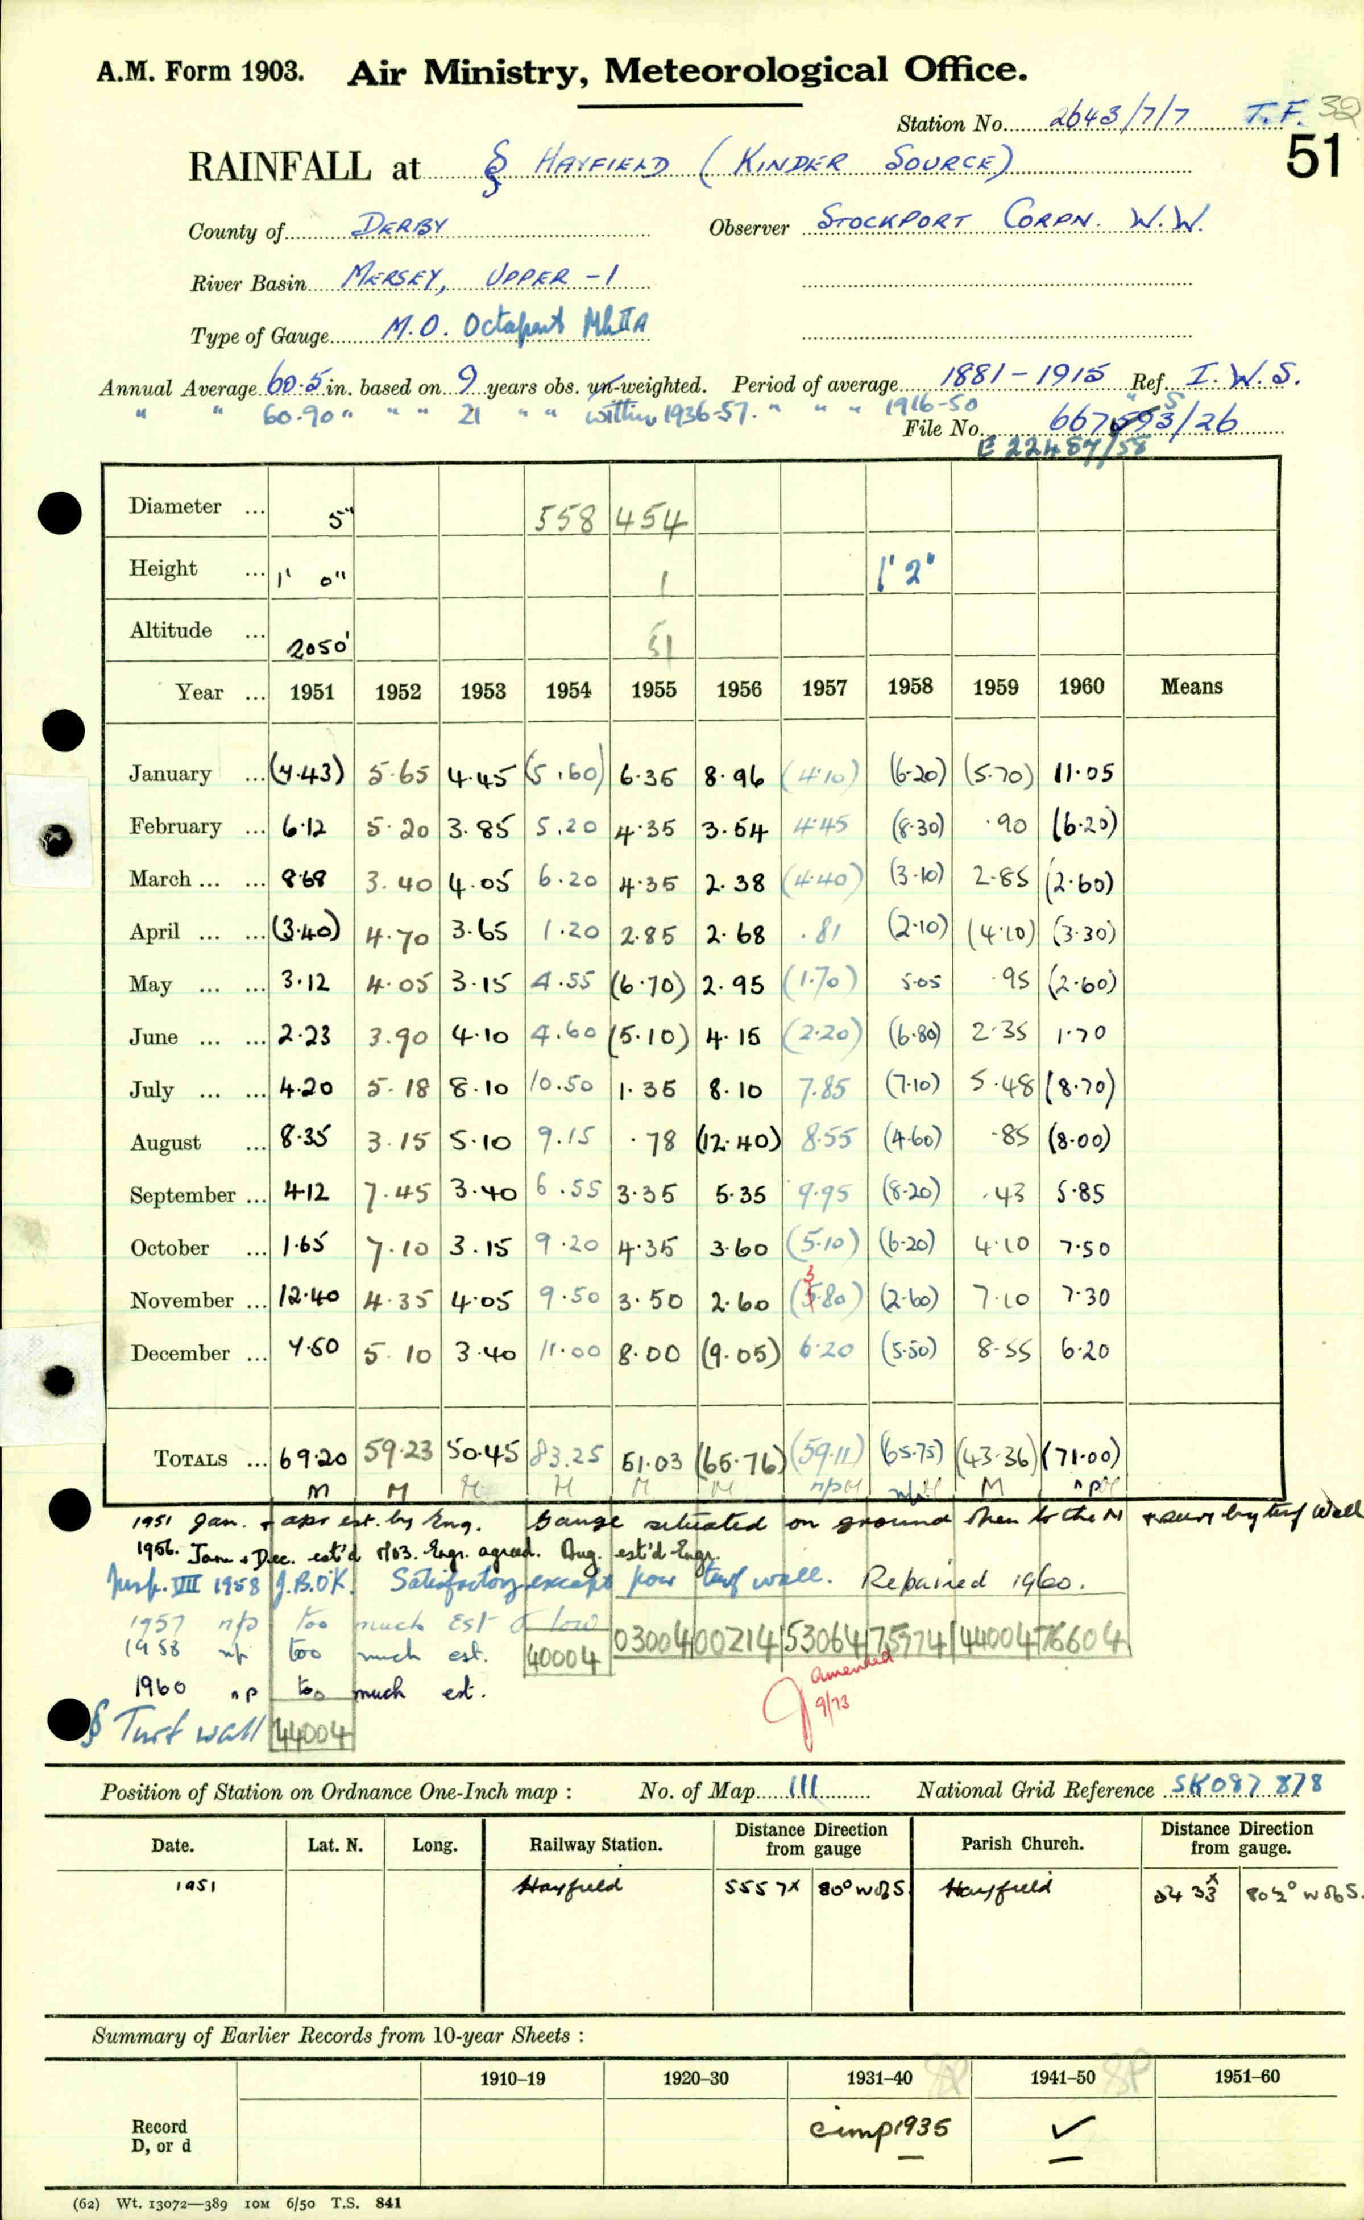 A.M. Form 1903. Air Ministry, Meteorological Office.
Station No. 2643/7/7 T.F. 32
51
RAINFALL at § HAYFIELD (KINDER SOURCE)
County of DERBY Observer STOCKPORT CORPN. W.W.
River Basin MERSEY, UPPER -1
Type of Gauge M.O. Octapent Mk IIA
Annual Average 60.5 in. based on 9 years obs. un-weighted. Period of average 1881-1915 Ref. I.W.S.
" " 60.90 " " " 21 " " within 1936-57. " " " 1916-50 " S
File No. 667593/26
E 22487/58
Diameter ... 5" 558 454
Height ... 1' 0" 1 1' 2"
Altitude ... 2050' 51
Year ... 1951 1952 1953 1954 1955 1956 1957 1958 1959 1960 Means
January ... (7.43) 5.65 4.45 (5.60) 6.35 8.96 (4.10) (6.20) (5.70) 11.05
February ... 6.12 5.20 3.85 5.20 4.35 3.54 4.45 (8.30) .90 (6.20)
March ... ... 8.68 3.40 4.05 6.20 4.35 2.38 (4.40) (3.10) 2.85 (2.60)
April ... ... (3.40) 4.70 3.65 1.20 2.85 2.68 .81 (2.10) (4.10) (3.30)
May ... ... 3.12 4.05 3.15 4.55 (6.70) 2.95 (1.70) 5.05 .95 (2.60)
June ... ... 2.23 3.90 4.10 4.60 (5.10) 4.15 (2.20) (6.80) 2.35 1.70
July ... ... 4.20 5.18 8.10 10.50 1.35 8.10 7.85 (7.10) 5.48 (8.70)
August ... 8.35 3.15 5.10 9.15 .78 (12.40) 8.55 (4.60) .85 (8.00)
September ... 4.12 7.45 3.40 6.55 3.35 5.35 9.95 (8.20) .43 5.85
October ... 1.65 7.10 3.15 9.20 4.35 3.60 (5.10) (6.20) 4.10 7.50
3
November ... 12.40 4.35 4.05 9.50 3.50 2.60 (5.80) (2.60) 7.10 7.30
December ... 7.50 5.10 3.40 11.00 8.00 (9.05) 6.20 (5.50) 8.55 6.20
TOTALS ... 69.20 59.23 50.45 83.25 51.03 (65.76) (59.11) (65.75) (43.36) (71.00)
M M M M M M npM npM M npM
1951 Jan. + apr est. by Eng. Gauge situated on ground open to the N + surr by turf wall
1956. Jan + Dec. est'd Engr. agreed. Aug. est'd Engr.
Insp. VII 1958 J.B.OK. Satisfactory except poor turf wall. Repaired 1960.
1957 np too much Est & low
1958 np too much est.
40004 03004 00214 53064 75974 44004 76604
1960 np too much est.
amended
9/73
§ Turf wall 44004
Position of Station on Ordnance One-Inch map : No. of Map 111 National Grid Reference SK 087 878
Date. Lat. N. Long. Railway Station. Distance from Direction gauge Parish Church. Distance from Direction gauge.
1951 Hayfield 5557x 80° W of S. Hayfield 5433x 80½° W of S.
Summary of Earlier Records from 10-year Sheets :
1910–19 1920–30 1931–40 1941–50 1951–60
Record
D, or d
cimp1935 ✓
(62) Wt. 13072—389 10M 6/50 T.S. 841